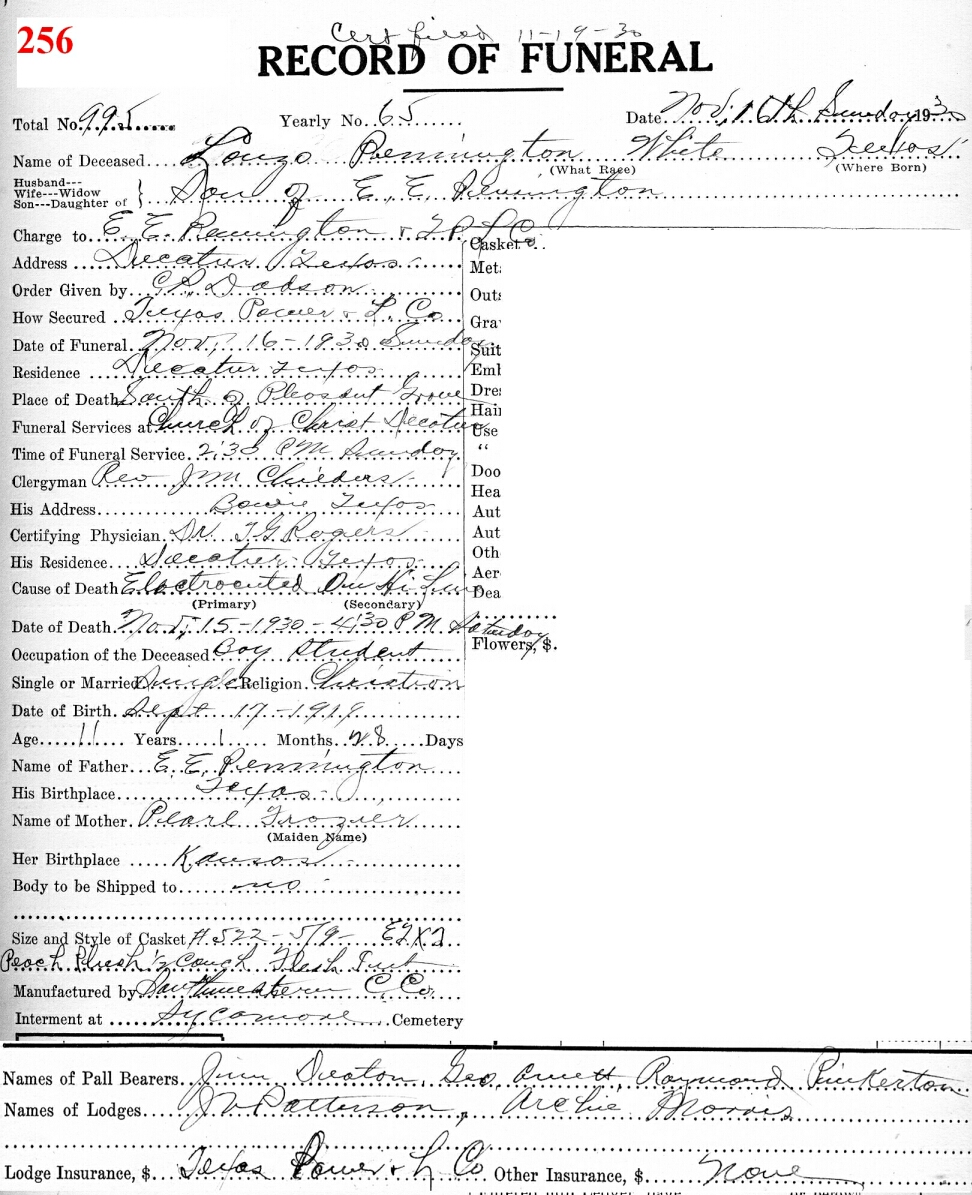 256
Cert filed 11-19-30
RECORD OF FUNERAL
Total No. 995 Yearly No. 65 Date Nov. 16th Sunday 1930
Name of Deceased Lonzo Pennington White Texas
(What Race) (Where Born)
Husband---
Wife---Widow
Son---Daughter of } Son of E. E. Pennington
Charge to E. E. Pennington & T P & L Co.
Address Decatur Texas
Order Given by Dodson
How Secured Texas Power & L. Co
Date of Funeral Nov. 16-1930 Sunday
Residence Decatur Texas
Place of Death South of Pleasant Grove
Funeral Services at Church of Christ Decatur
Time of Funeral Service 2:30 PM Sunday
Clergyman Rev J M Childers
His Address Bowie Texas
Certifying Physician Dr. T G Rogers
His Residence Decatur Texas
Cause of Death Electrocuted On Hi Line
(Primary) (Secondary)
Date of Death Nov. 15-1930-4:30 PM Saturday
Occupation of the Deceased Boy Student
Single or Married Single Religion Christian
Date of Birth Sept 17-1919
Age 11 Years 1 Months 28 Days
Name of Father E. E. Pennington
His Birthplace Texas
Name of Mother Pearl Frozier
(Maiden Name)
Her Birthplace Kansas
Body to be Shipped to no
Size and Style of Casket #522-5/9-
Peach Plush 1/2 Couch Flesh Int
Manufactured by Southwestern C. Co.
Interment at Sycamore Cemetery
Casket
Met
Outs
Gra
Suit
Emb
Dres
Hair
Use
“
Doo
Hea
Aut
Aut
Oth
Aer
Dea
Flowers, $.
Names of Pall Bearers Jim Deaton, Geo Raymond Pinkerton
Names of Lodges J V Patterson, Archie Morris
Lodge Insurance, $ Texas Power & L Co Other Insurance, $ None